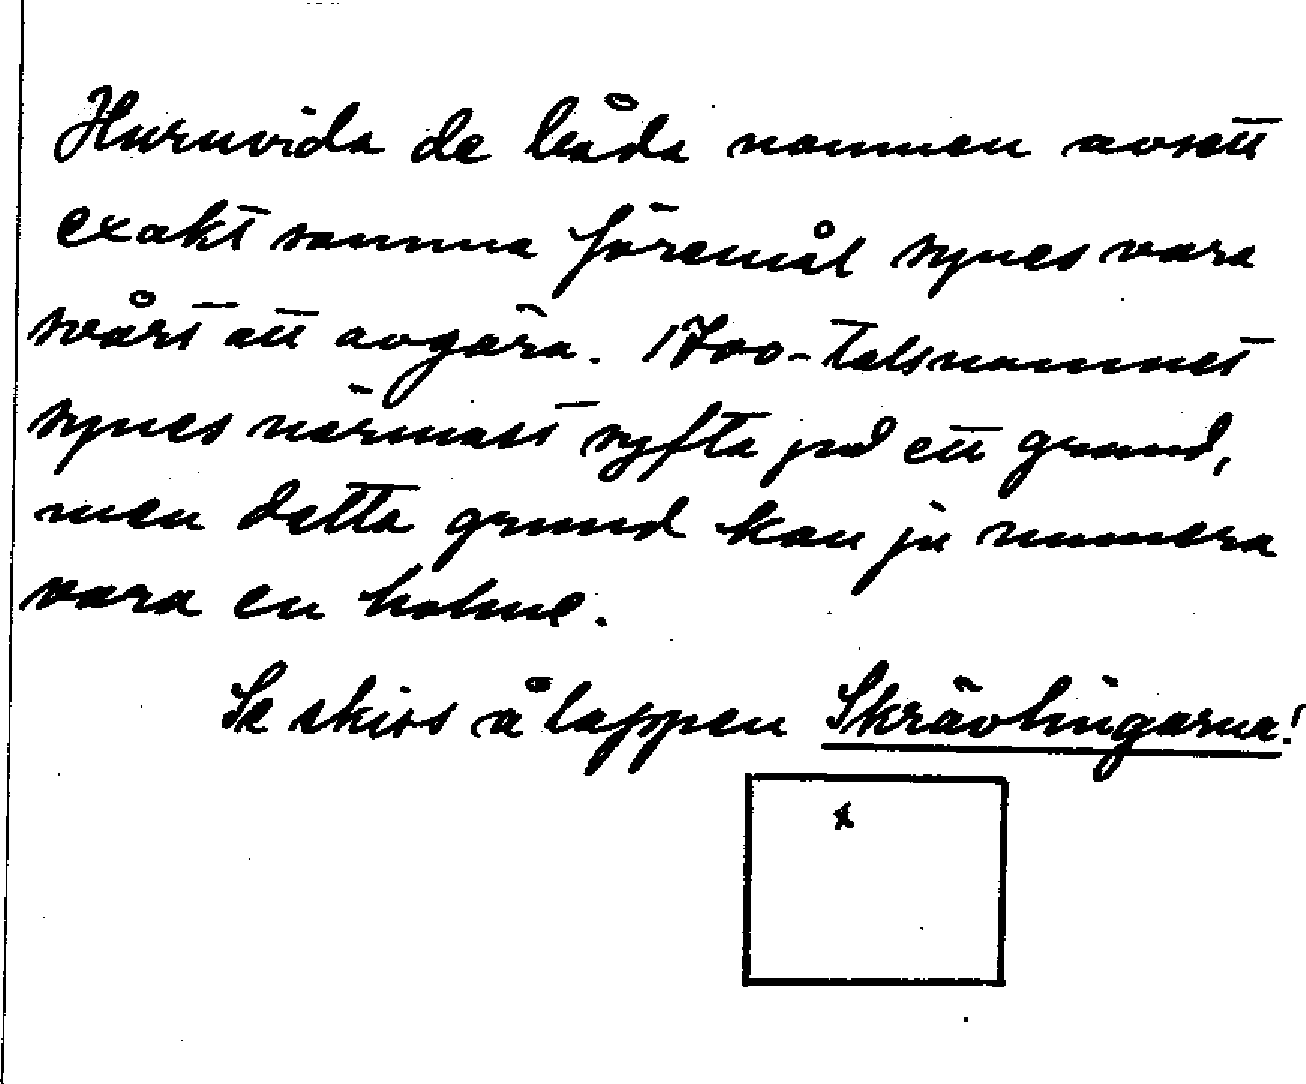 Huruvida de båda namnen avsett
exakt samma föremål synes vara
svårt att avgöra. 1700-talsnamnet
synes närmast syfta på ett grund,
men detta grund kan ju numera
vara en holme.
Se skiss å lappen Skrävlingarna!
x